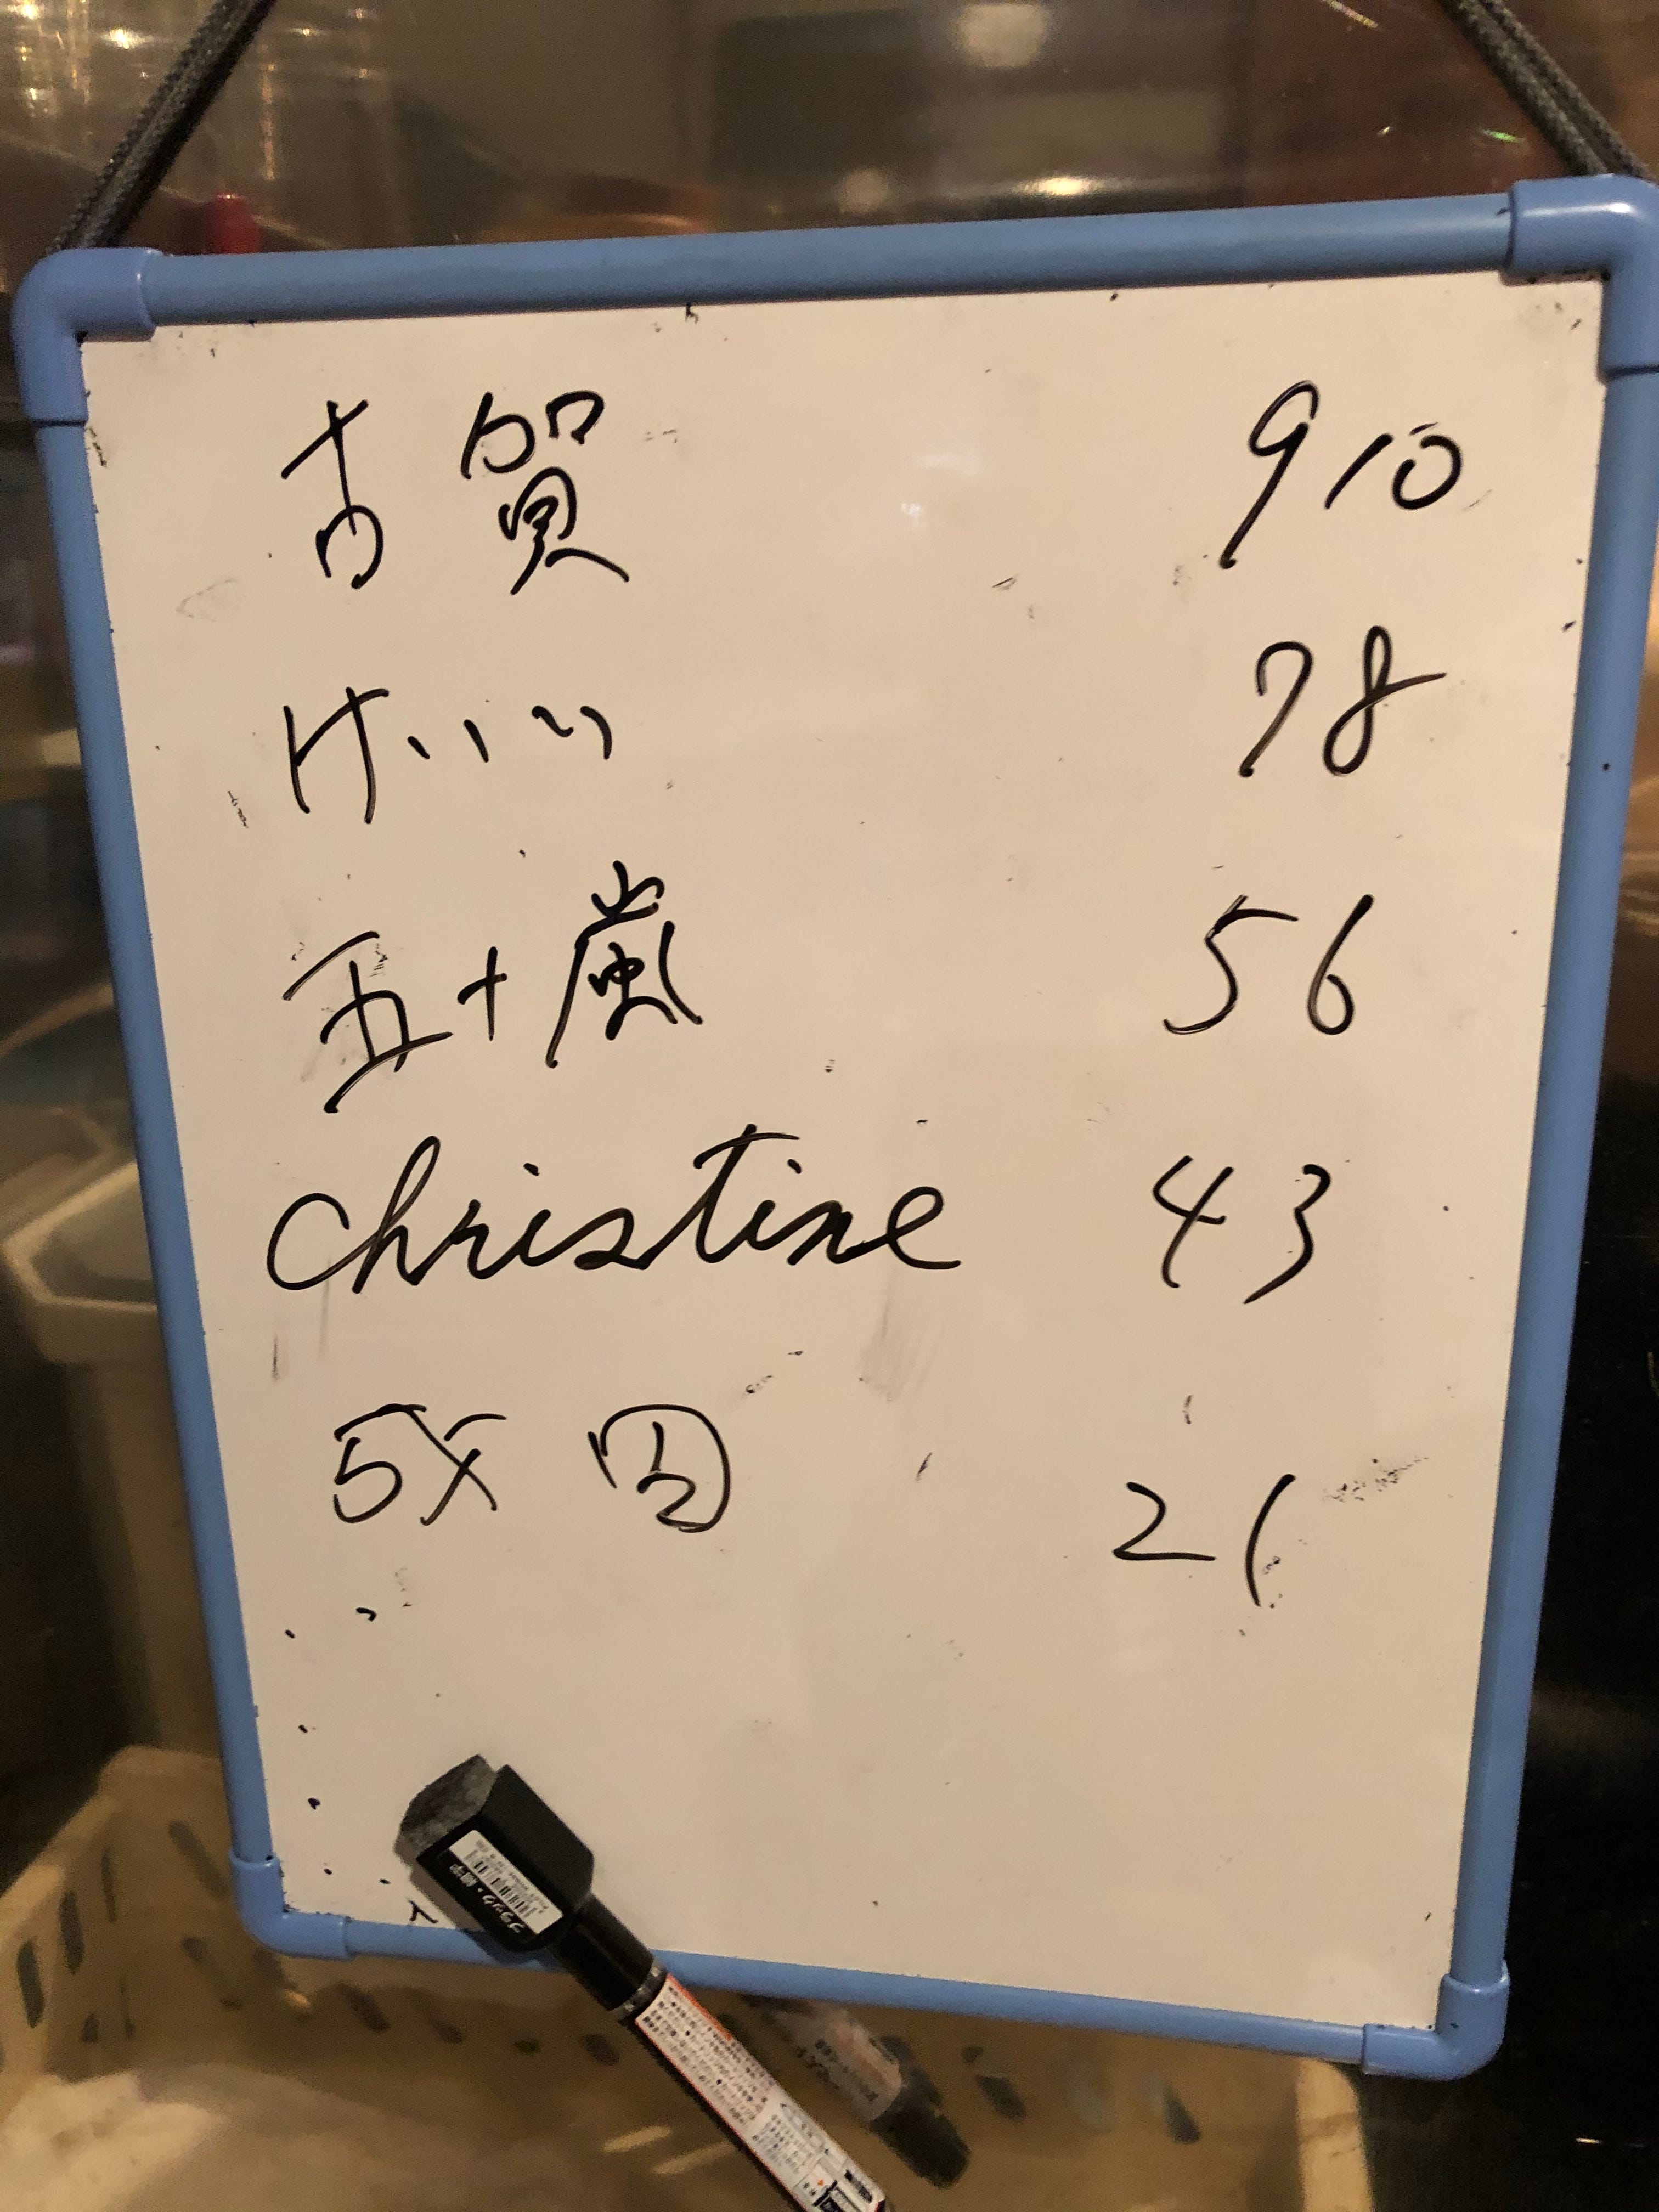 古賀 9 10
けいこ 78
五十嵐 56
Christine 43
21